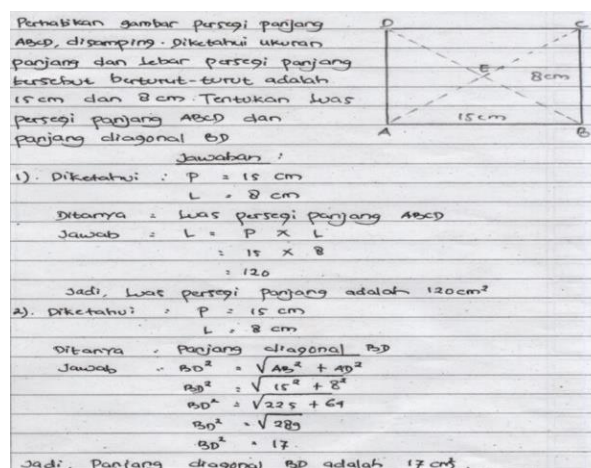 Perhatikan gambar persegi panjang
ABCD, disamping. Diketahui ukuran
panjang dan lebar persegi panjang
tersebut berturut-turut adalah
15 cm dan 8 cm. Tentukan luas
persegi panjang ABCD dan
panjang diagonal BD
D C
E
8 cm
15 cm
A B
Jawaban :
1). Diketahui : P = 15 cm
L = 8 cm
Ditanya = Luas persegi panjang ABCD
Jawab : L = P x L
= 15 x 8
= 120
Jadi, luas persegi panjang adalah 120 cm²
2). Diketahui : P = 15 cm
L = 8 cm
Ditanya : Panjang diagonal BD
Jawab : BD² = √AB² + AD²
BD² = √15² + 8²
BD² = √225 + 64
BD² = √289
BD² = 17.
Jadi, Panjang diagonal BD adalah 17 cm².